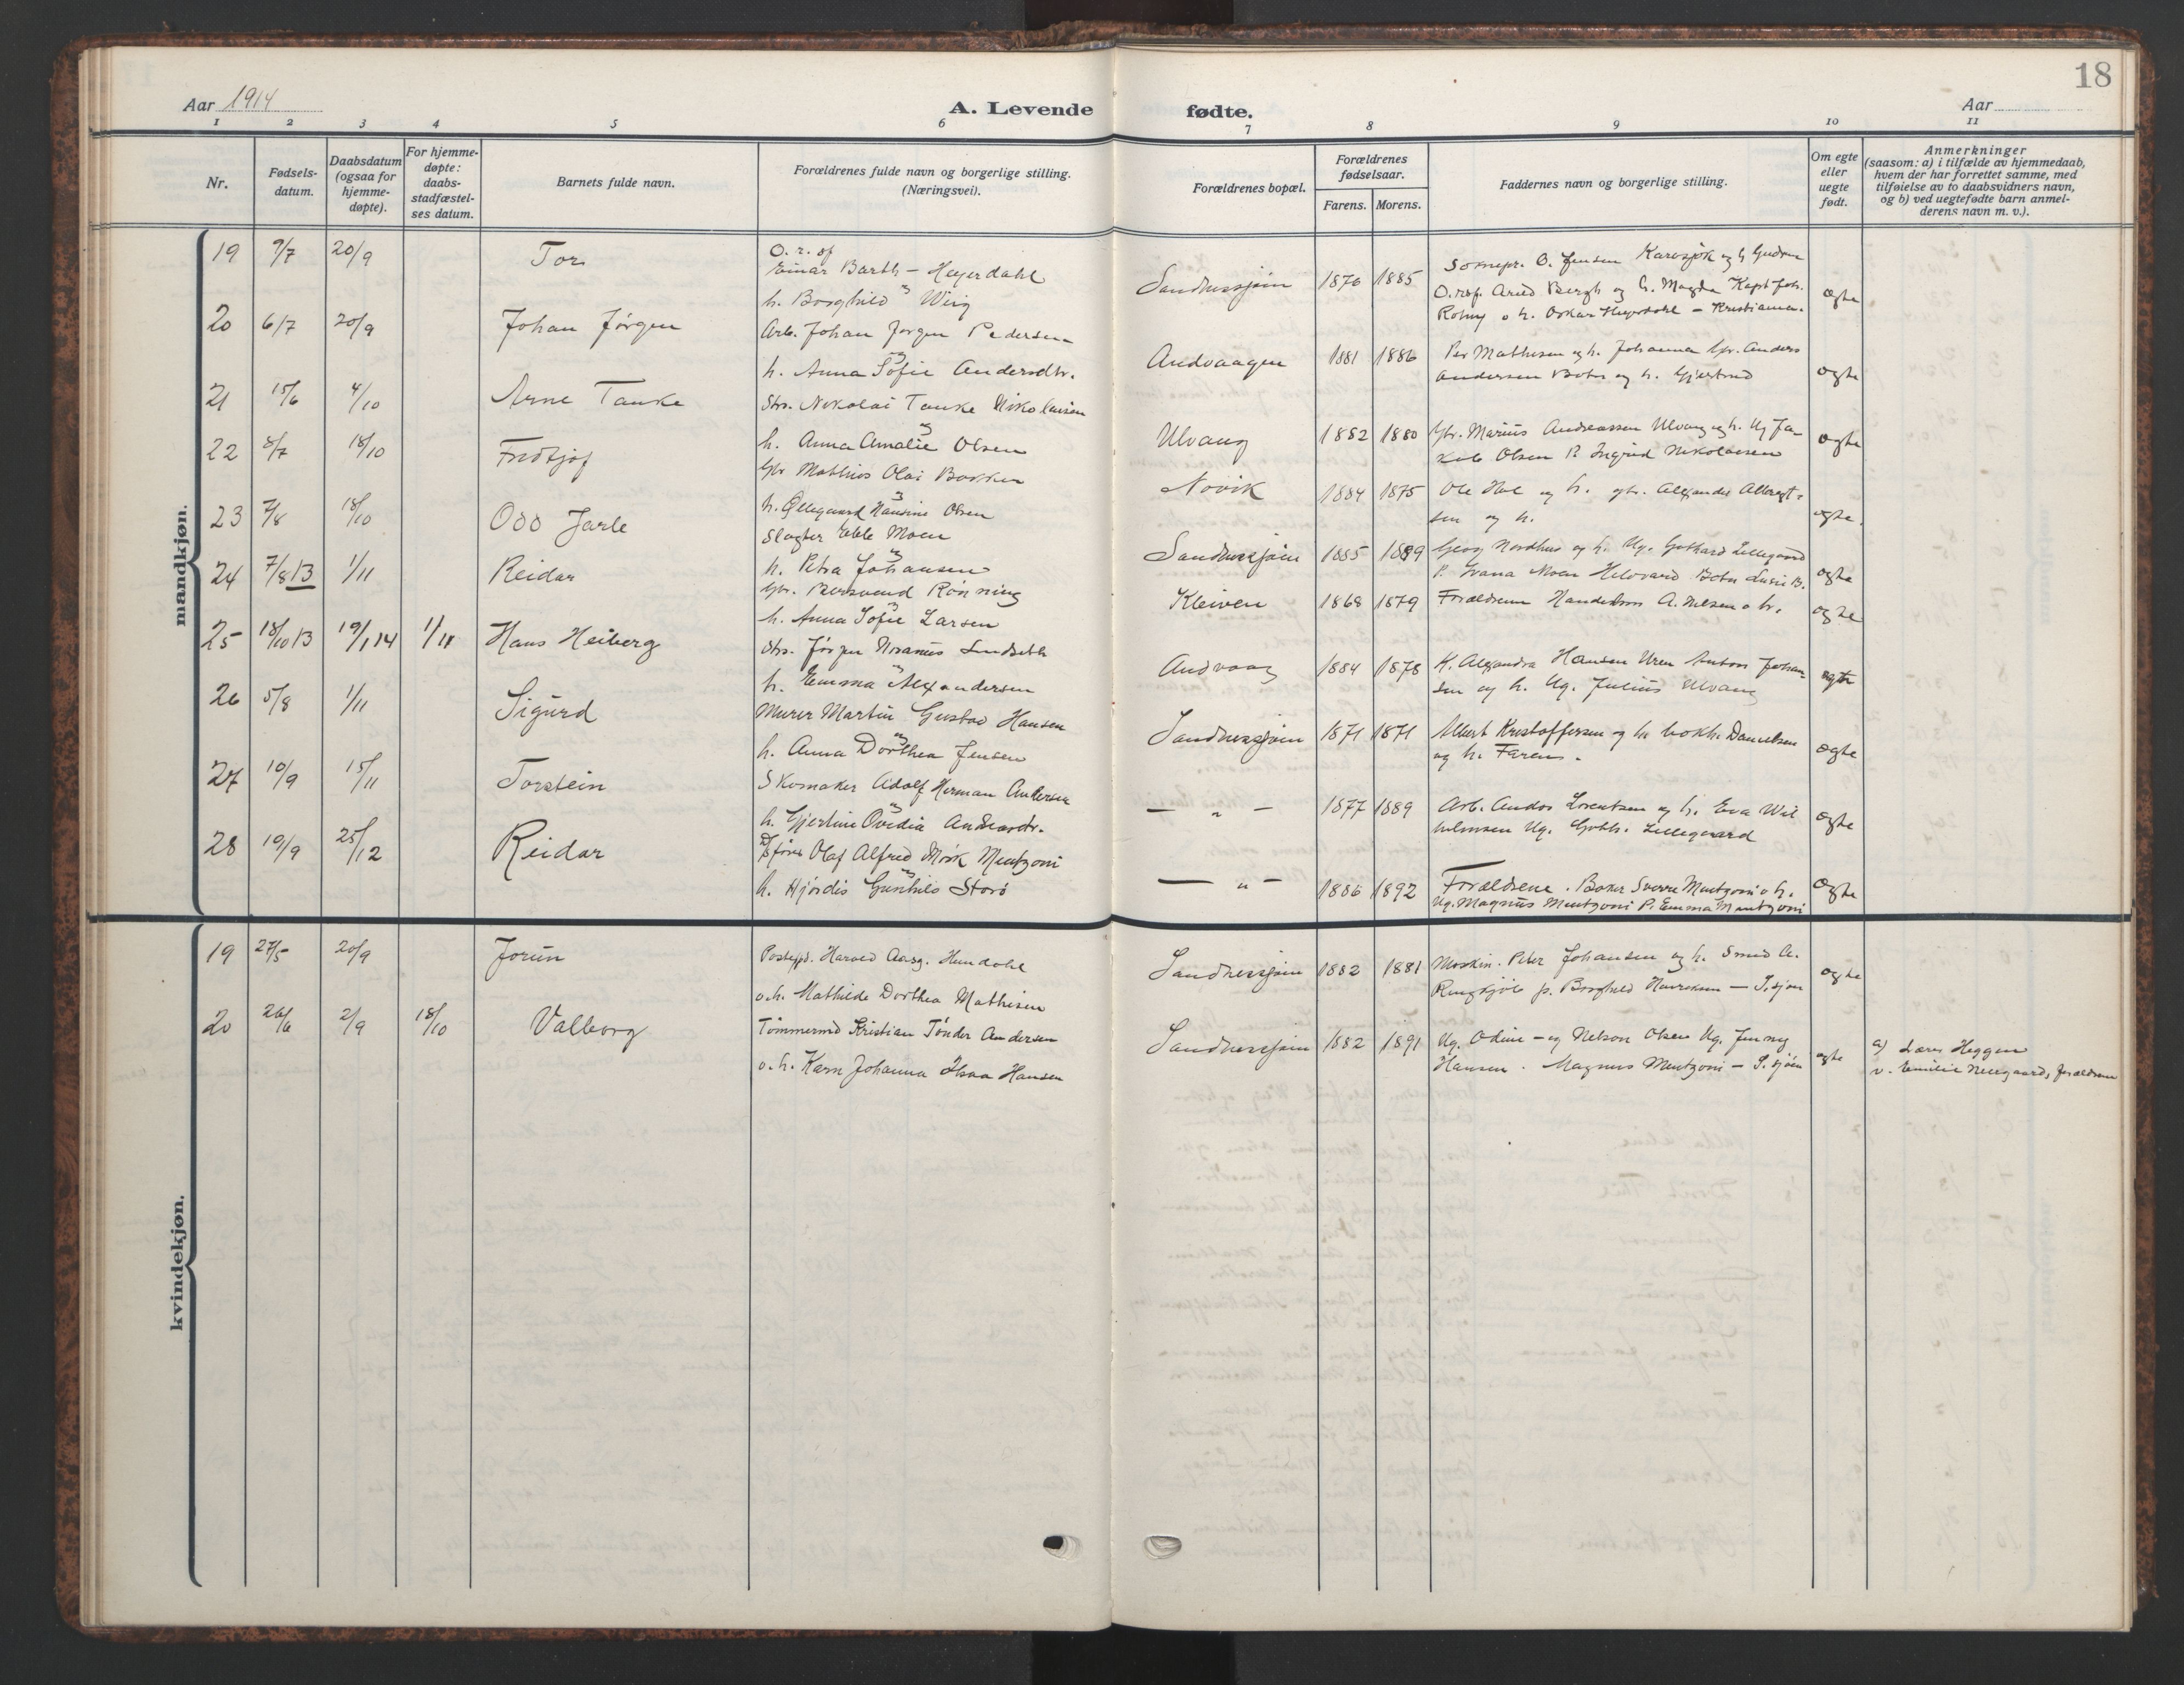 18
Aar 1914
A. Levende fødte.
Aar
1 2 3 4 5 6 7 8 9 10 11
Nr.
Fødsels-
datum.
Daabsdatum
(ogsaa for
hjemme-
døpte).
For hjemme-
døpte:
daabs-
stadfæstel-
ses datum.
Barnets fulde navn.
Forældrenes fulde navn og borgerlige stilling.
(Næringsvei).
Forældrenes bopæl.
Forældrenes
fødselsaar.
Farens. Morens.
Faddernes navn og borgerlige stilling.
Om egte
eller
uegte
født.
Anmerkninger
(saasom: a) i tilfælde av hjemmedaab,
hvem der har forrettet samme, med
tilføielse av to daabsvidners navn,
og b) ved uegtefødte barn anmel-
derens navn m. v.).
mandkjøn.
19 9/7 20/9 Tor
O. r. sf
Einar Barth - Heyerdahl
h. Borghild Wiig
Sandnessjøen 1876 1885
Sognepr. O. Jensen Karasjok og h Gudrun
O.rsf. Arild Bergh og h. Magda Kapt Joh.
o h. Oskar Heyerdahl - Kristiania.
egte
20 6/7 20/9 Johan Jørgen
Arb. Johan Jørgen Pedersen
h. Anna Sofie Andersdtr.
Andvaagen 1881 1886
Per Mathisen og h. Johanna Gr. Anders
Andersen Botn og h. Gjertrud
egte
21 15/6 4/10 Arne Tanke
Str. Nikolai Tanke Nikolaisen
h. Anna Amalie Olsen
Ulvang 1882 1880
Gbr. Marius Andreassen Ulvang og h. Ug Ja-
kob Olsen P. Ingrid Nikolaisen
egte
22 8/7 18/10 Fridtjof
Gbr Mathias Olai Bakken
h. Ellegaard Hansine Olsen
Novik 1884 1875
Ole Hol og h. gbr. Alexander Albregt-
sen og h.
egte.
23 7/8 18/10 Odd Jarle
Slagter Ebbe Moen
h. Petra Johansen
Sandnessjøen 1885 1889
Georg Nordhus og h. Ug. Gothard Lillegaard
P. Ivana Moen Hildvard Botn B.
egte
24 7/8 13 1/11 Reidar
Gbr. Bersvend Rønning
h. Anna Sofie Larsen
Kleiven 1868 1879
Forældrene Handelsm A. Nelsen o h.
egte
25 18/10 13 19/1 14 1/11 Hans Heiberg
Str. Jørgen Noranus Lindseth
h. Emma Alexandersen
Andvaag 1884 1878
K. Alexandra Hansen Uren Anton Johan-
sen og h. Ug. Julius Ulvang
egte
26 5/8 1/11 Sigurd
Murer Martin Gustav Hansen
h. Anna Dorthea Jensen
Sandnessjøen 1871 1871
Albert Kristoffersen og h bokh. Danielsen
og h. Faren.
egte
27 10/9 15/11 Torstein
Skomaker Adolf Herman Andersen
h. Gjertine Ovedia Andreasdtr.
— „ — 1877 1889
Arb. Andor Lorentzen og h. Eva Wil
helmsen Ug. Goth. Lillegaard
egte
28 10/9 25/12 Reidar
Dsfører Olaf Alfred Mørk Mentzoni
h. Hjørdis Gunhild Storø
— „ — 1886 1892
Forældrene. Baker Sverre Mentzoni o h.
Ug. Magnus Mentzoni P. Emma Mentzoni
egte
kvindekjøn.
19 27/5 20/9 Jorun
Postexpd. Harald Aasg. Hundahl
o.h. Mathilde Dorthea Mathisen
Sandnessjøen 1882 1881
Maskin. Peter Johansen og h. Smed A.
p. Borghild Henriksen — S.sjøen
egte
20 26/6 2/9 18/10 Valborg
Tømmermd Kristian Tønder Andersen
o. h. Karn Johanna Hansen
Sandnessjøen 1882 1891
Ug. Odine - og Nelson Olsen Ug. Jenny
Hansen. Magnus Mentzoni — S.sjøen
egte
a) Lærer Heggen
v. Emilie Neergaard, forældrene